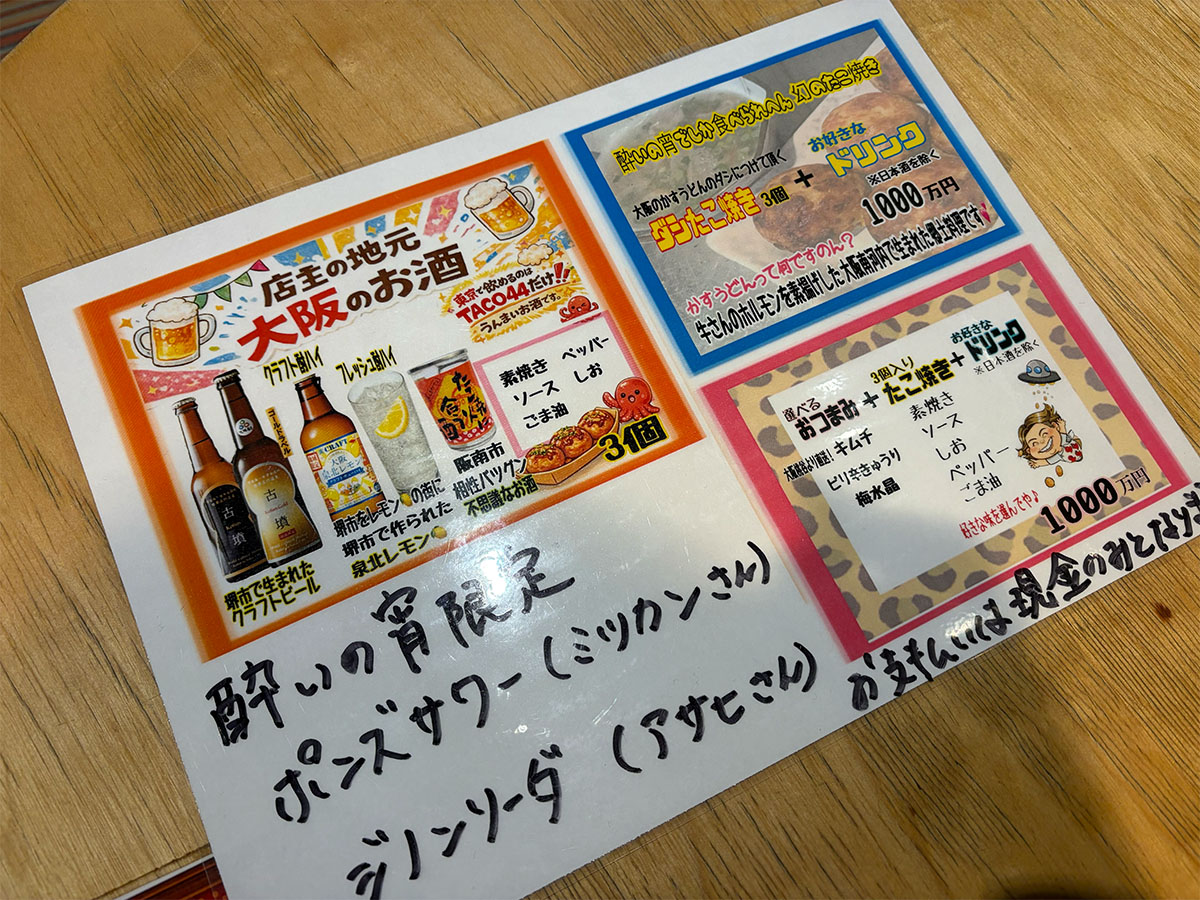 店主の地元
大阪のお酒
東京で飲めるのは
TACO44だけ!!
うんまいお酒です。
クラフト酎ハイ
フレッシュ酎ハイ
ゴールドラベル
古墳
古墳
CRAFT
大阪
泉北レモン
素焼き ペッパー
ソース しお
ごま油
3個
堺市で生まれた
クラフトビール
堺市をレモンの街に
堺市で作られた
泉北レモン
阪南市
相性バツグン
不思議なお酒
酔いの宵でしか食べられへん 幻のたこ焼き
大阪のかすうどんのダシにつけて頂く
ダシたこ焼き 3個 + お好きな
ドリンク
※日本酒を除く
1000万円
かすうどんって何ですのん?
牛さんのホルモンを素揚げした大阪南河内で生まれた郷土料理です
選べる
おつまみ + 3個入り
たこ焼き + お好きな
ドリンク
※日本酒を除く
大阪鶴橋より直送! キムチ
ピリ辛きゅうり
梅水晶
素焼き
ソース
しお
ペッパー
ごま油
好きな味を選んでや♪
1000万円
酔いの宵限定
ポンズサワー(ミツカンさん)
ジノンソーダ (アサヒさん)
お支払いは現金のみとなり